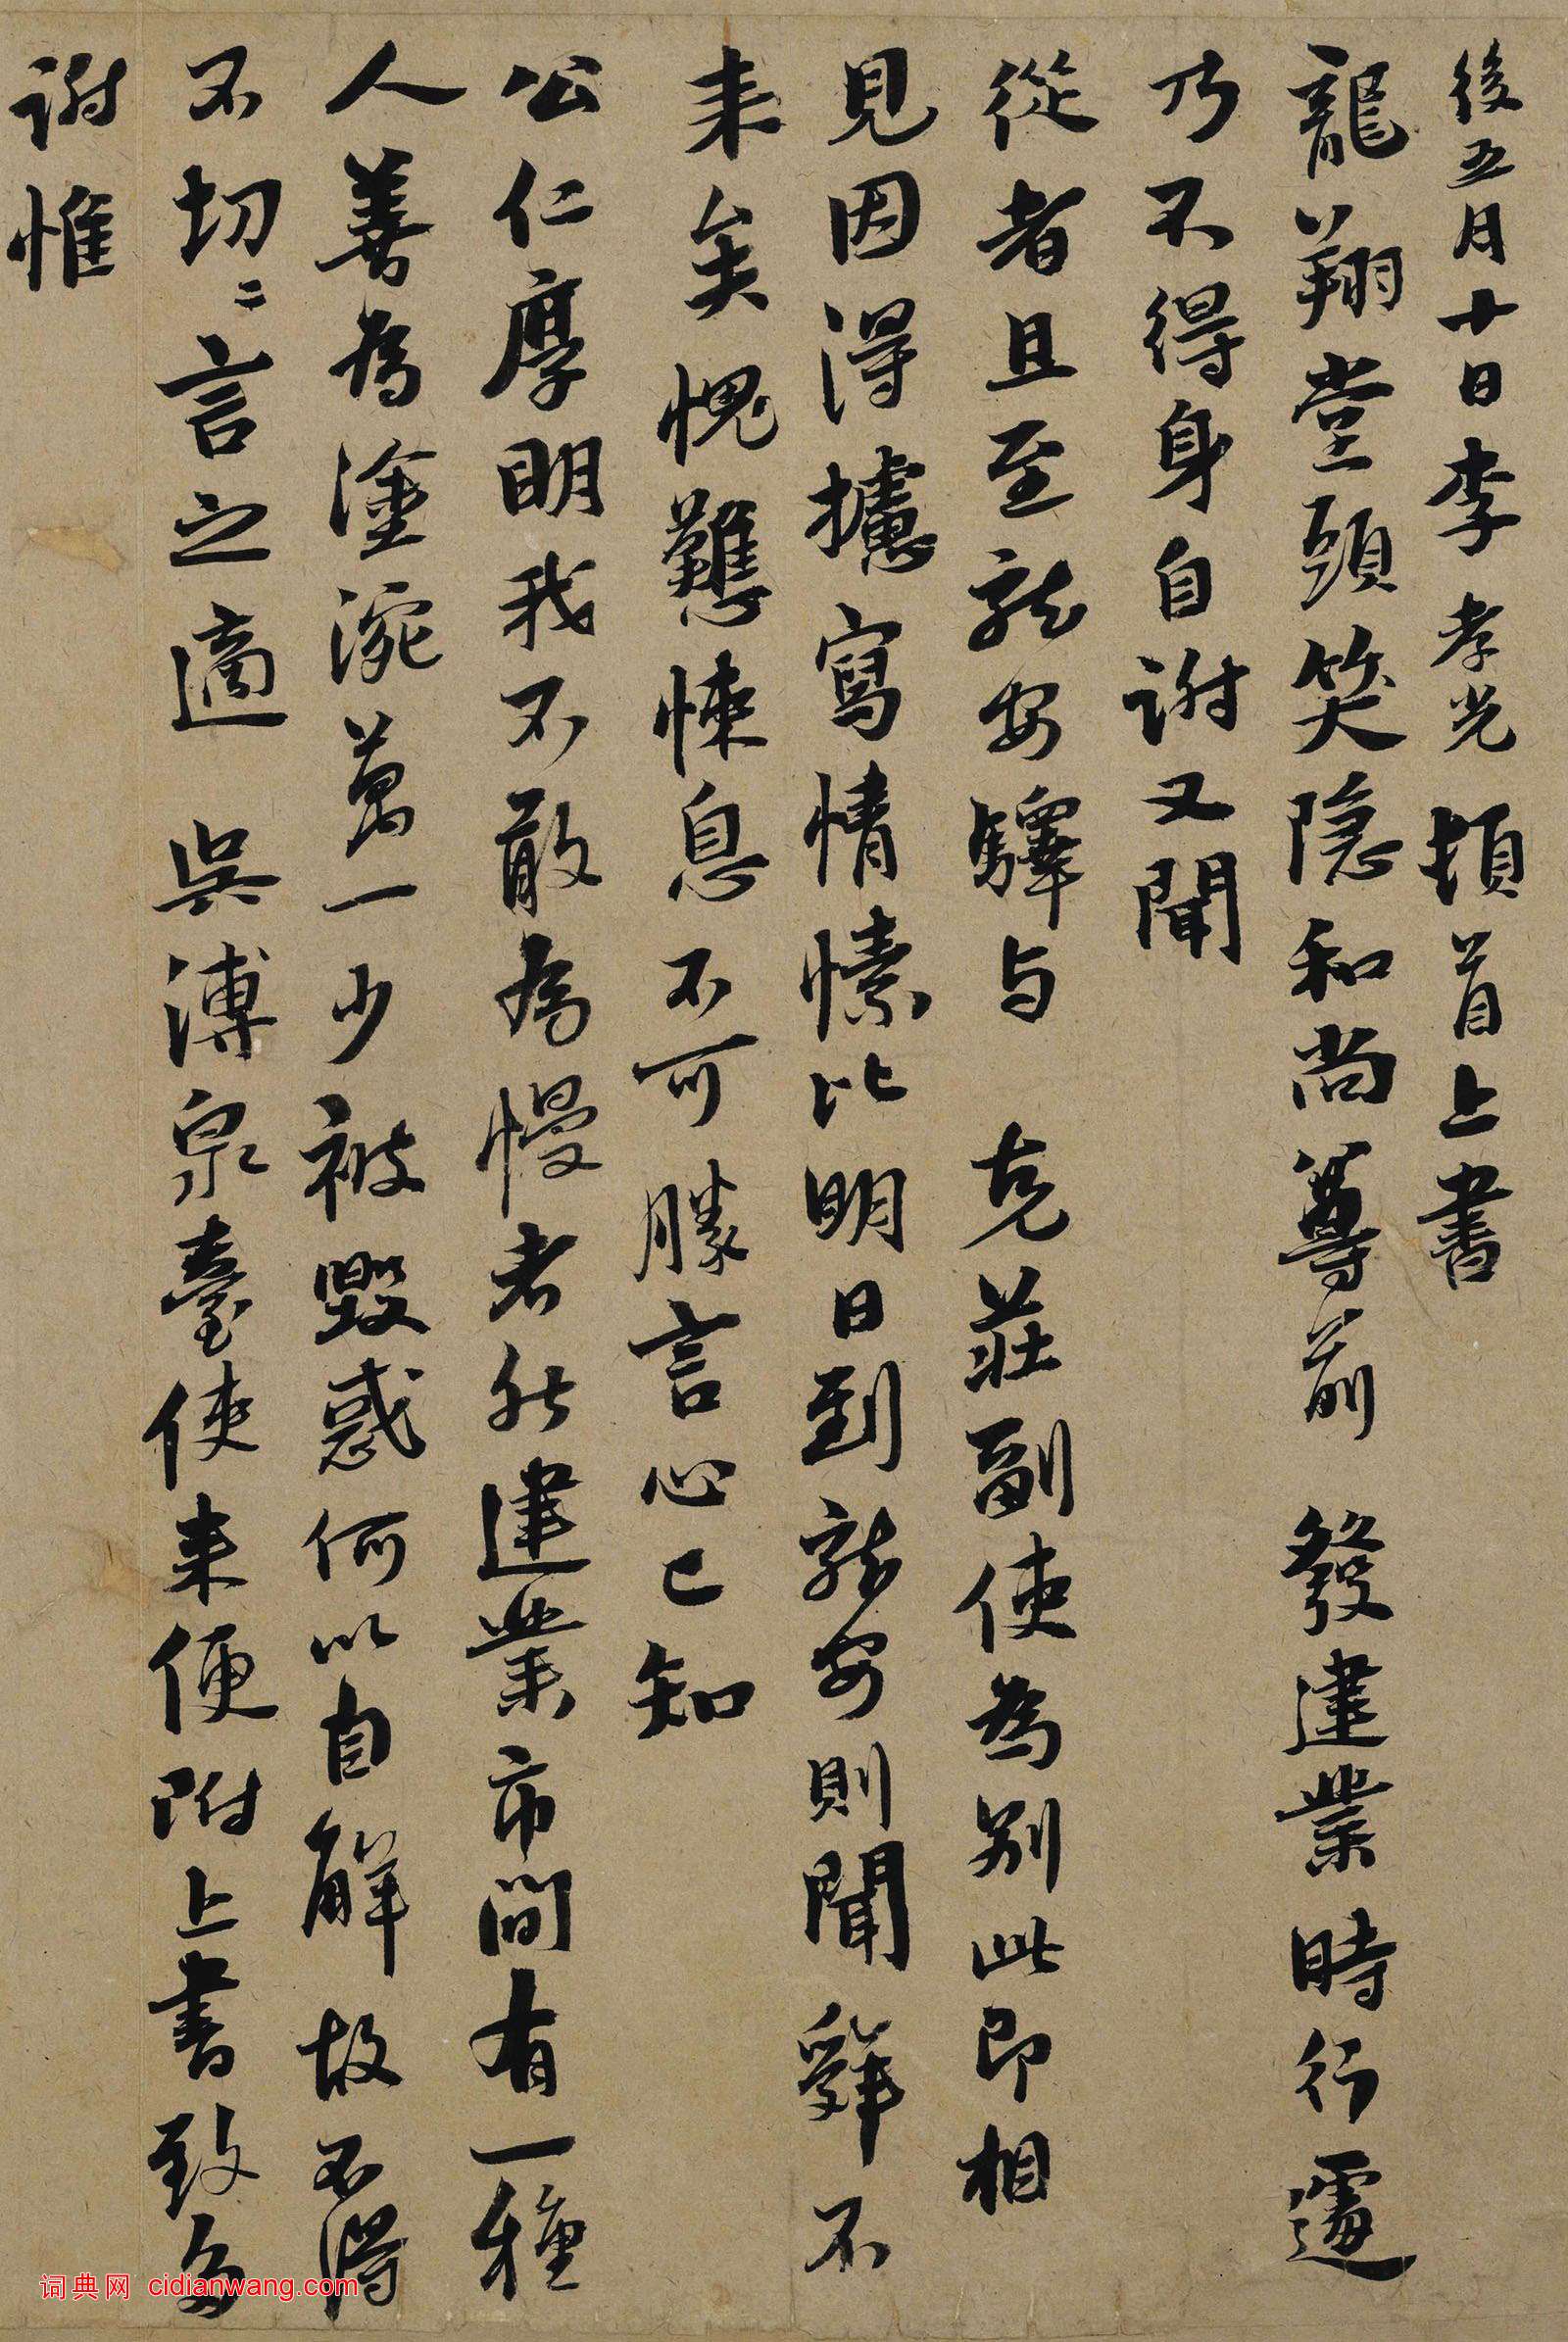 後五月十日李孝光頓首上書
龍翔堂頭笑隐和尚尊前 發建業時行遽
乃不得身自謝又聞
從者且至就安驛与 克莊副使為别此即相
見因得攄寫情愫比明日到就安則聞辭不
来矣愧戁悚息不可勝言心已知
公仁厚明我不敢為慢者然建業市間有一種
人善為塗涴萬一少被毀惑何以自解故不得
不切二言之適 吳溥泉臺使来便附上書致多
謝惟
词典网 cidianwang.com